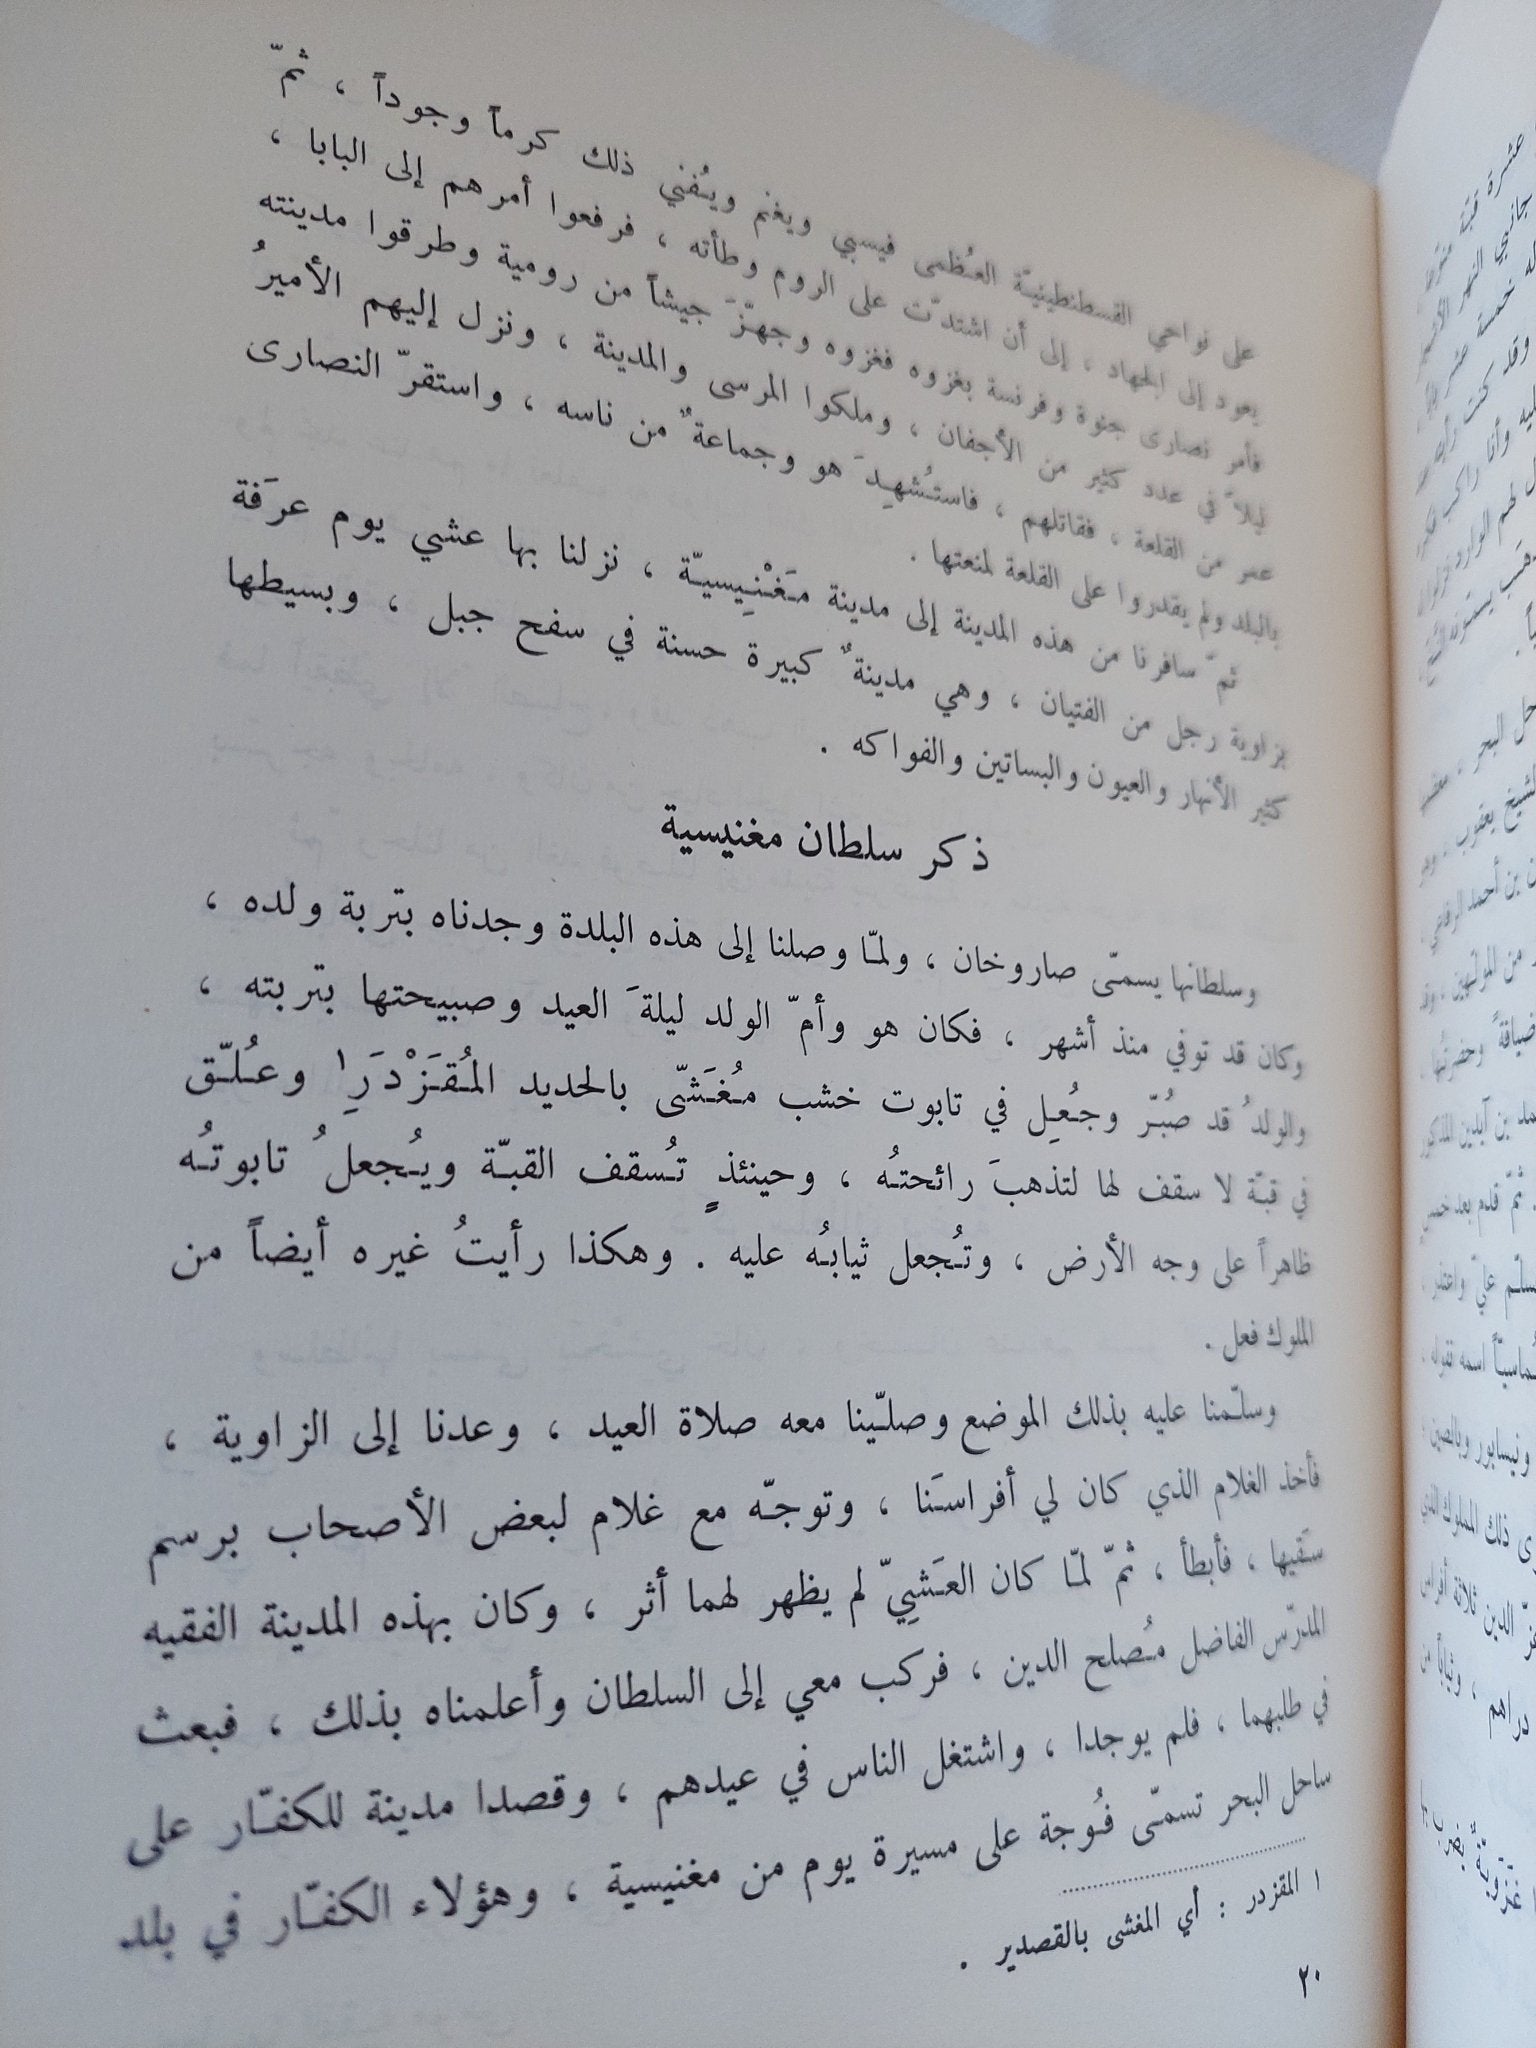 على نواحي القسطنطينيّة العُظمى فيسبي ويغنم ويُفني ذلك كرماً وجوداً ، ثمّ
يعود إلى الجهاد ، إلى أن اشتدّت على الروم وطأته ، فرفعوا أمرهم إلى البابا ،
فأمر نصارى جنوة وفرنسة بغزوه فغزوه وجهّزَ جيشاً من رومية وطرقوا مدينته
ليلاً في عدد كثير من الأجفان ، وملكوا المرسى والمدينة ، ونزل إليهم الأميرُ
عمر من القلعة ، فقاتلهم ، فاستُشهِدَ هو وجماعةٌ من ناسه ، واستقرّ النصارى
بالبلد ولم يقدروا على القلعة لمنعتها .
ثمّ سافرنا من هذه المدينة إلى مدينة مَغْنِيسيّة ، نزلنا بها عشي يوم عرَفة
بزاوية رجل من الفتيان ، وهي مدينةٌ كبيرة حسنة في سفح جبل ، وبسيطها
كثير الأنهار والعيون والبساتين والفواكه .
ذكر سلطان مغنيسية
وسلطانها يسمّى صاروخان ، ولمّا وصلنا إلى هذه البلدة وجدناه بتربة ولده ،
وكان قد توفي منذ أشهر ، فكان هو وأمّ الولد ليلةَ العيد وصبيحتها بتربته ،
والولدُ قد صُبّر وجُعِل في تابوت خشب مُغَشّى بالحديد المُقَزْدَرِ١ وعُلّق
في قبّة لا سقف لها لتذهبَ رائحتُه ، وحينئذٍ تُسقف القبّة ويُجعلُ تابوتُه
ظاهراً على وجه الأرض ، وتُجعل ثيابُه عليه . وهكذا رأيتُ غيره أيضاً من
الملوك فعل .
وسلّمنا عليه بذلك الموضع وصلّينا معه صلاة العيد ، وعدنا إلى الزاوية ،
فأخذ الغلام الذي كان لي أفراسَنا ، وتوجّه مع غلام لبعض الأصحاب برسم
سَقيها ، فأبطأ ، ثمّ لمّا كان العَشِيّ لم يظهر لهما أثر ، وكان بهذه المدينة الفقيه
المدرّس الفاضل مُصلح الدين ، فركب معي إلى السلطان وأعلمناه بذلك ، فبعث
في طلبهما ، فلم يوجدا ، واشتغل الناس في عيدهم ، وقصدا مدينة للكفّار على
ساحل البحر تسمّى فُوجة على مسيرة يوم من مغنيسية ، وهؤلاء الكفّار في بلد
١ المقزدر : أي المغشى بالقصدير .
٢٠